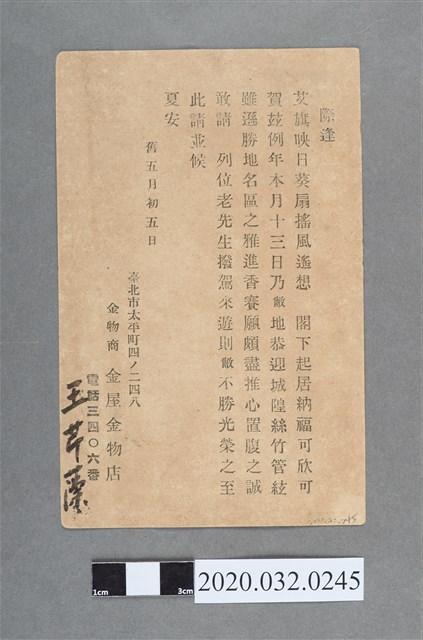 際逢
艾旗映日葵扇搖風遙想　閣下起居納福可欣可
賀茲例年本月十三日乃敝地恭迎城隍絲竹管絃
雖遜勝地名區之雅進香賽願頗盡推心置腹之誠
敢請　列位老先生撥駕來遊則敝不勝光榮之至
此請並候
夏安
舊五月初五日
臺北市太平町四ノ二四八
金物商　金屋金物店
電話三四〇六番
王芹
1cm
3cm
2020.032.0245